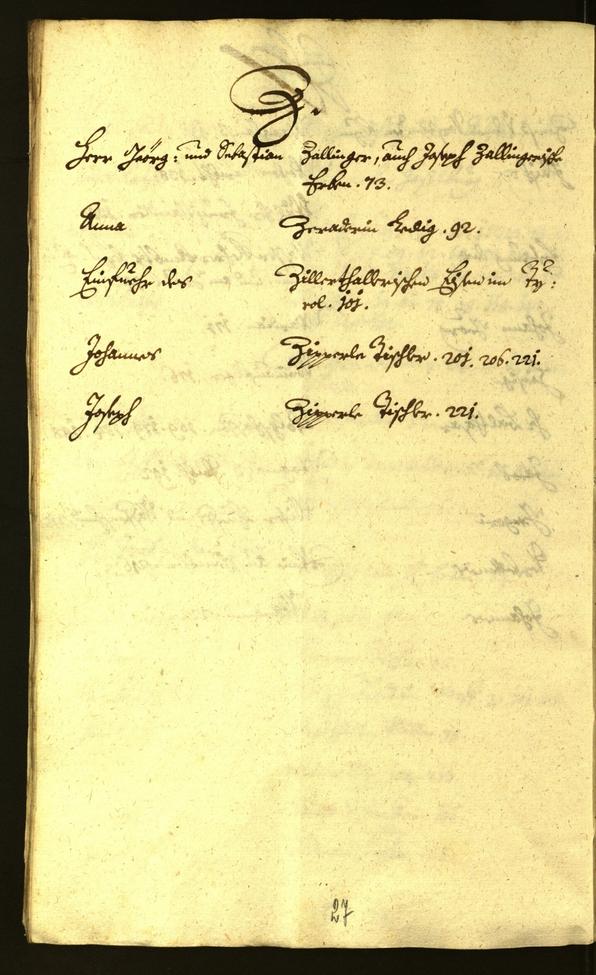 Z.
Herr Jeörg: und Sebastian Zallinger, auch Joseph Zallingerische
Erben. 73.
Anna Zeraderin Ledig. 92.
Einfuehr des Zillerthallerischen Eisen im Ty¬
rol. 101.
Johannes Zipperle Tischler. 201. 206. 221.
Joseph Zipperle Tischler. 221.
27